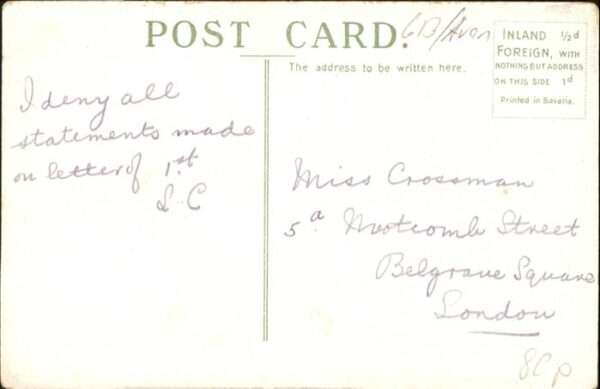 POST CARD.
GB/Avon
The address to be written here.
INLAND ½d
FOREIGN, WITH
NOTHING BUT ADDRESS
ON THIS SIDE 1d
Printed in Bavaria.
I deny all
statements made
on letter of 1.st
S.C
Miss Crossman
5a Motcomb Street
Belgrave Square
London